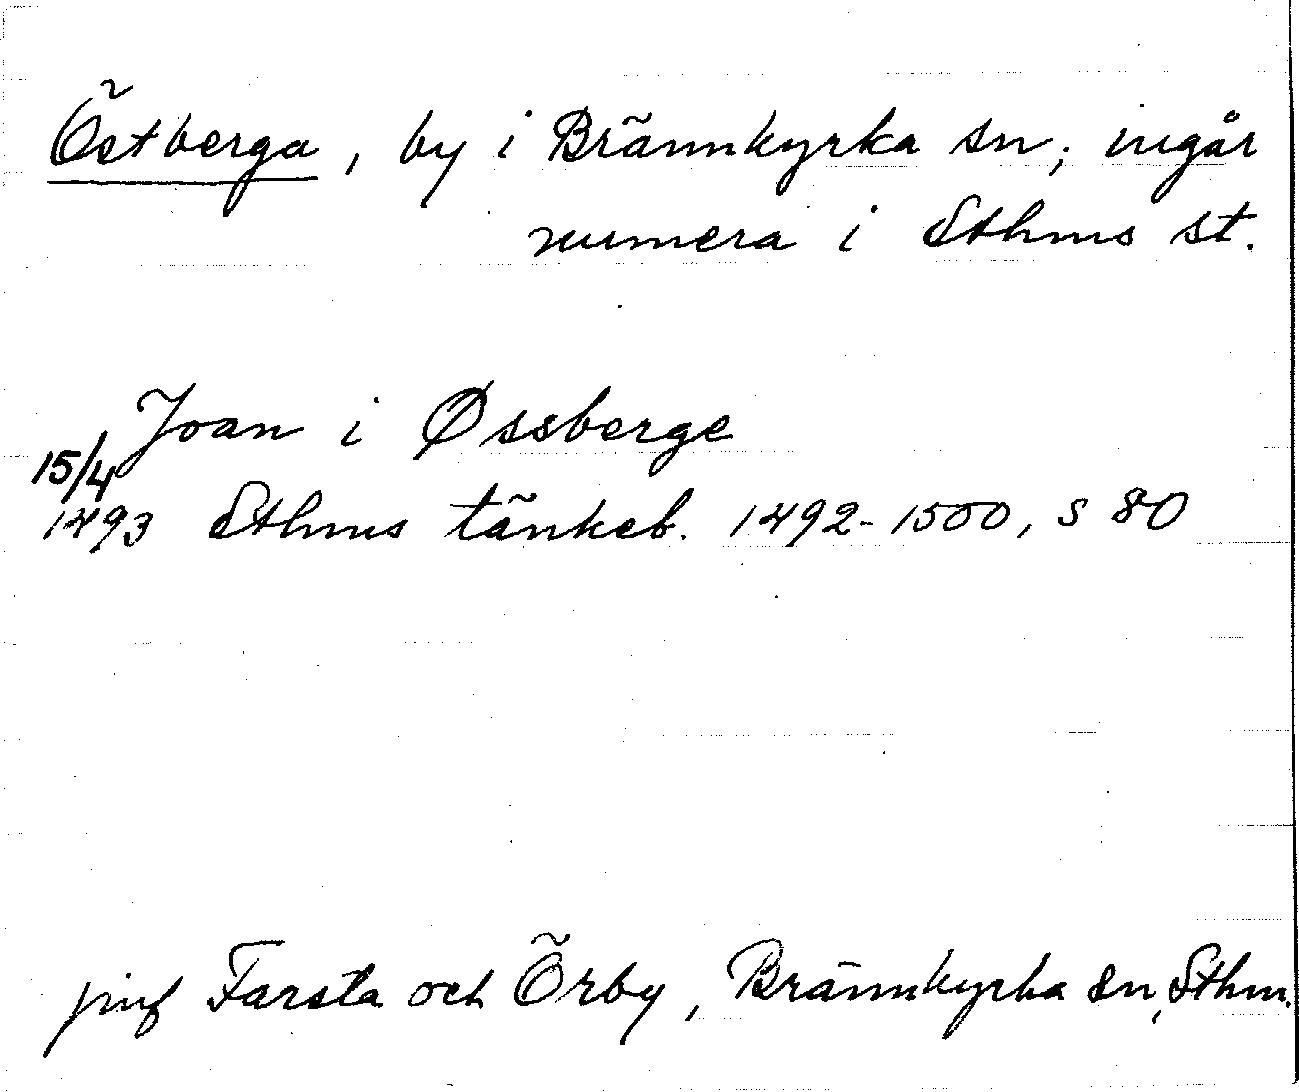 Östberga, by i Brännkyrka sn; ingår
numera i Sthms st.
Joan i Øssberge
15/4
1493 Sthms tänkeb. 1492-1500, s 80
jmf Farsta och Örby, Brännkyrka sn, Sthm.